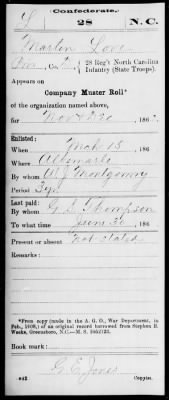 Confederate.
L 28 N.C.
Martin Love
Co. 28 Reg't North Carolina
Infantry (State Troops).
Appears on
Company Muster Roll*
of the organization named above,
for Nov & Dec, 186
Enlisted:
When Mch 15, 186
Where Albemarle
By whom W. J. Montgomery
Period 3 yrs
Last paid:
By whom G. S. Thompson
To what time June 30, 186
Present or absent Not stated
Remarks:
*From copy (made in the A. G. O., War Department, in
Feb., 1909,) of an original record borrowed from Stephen B.
Weeks, Greensboro, N.C.—M. S.
Book mark:
G. E. Jones
Copyist.